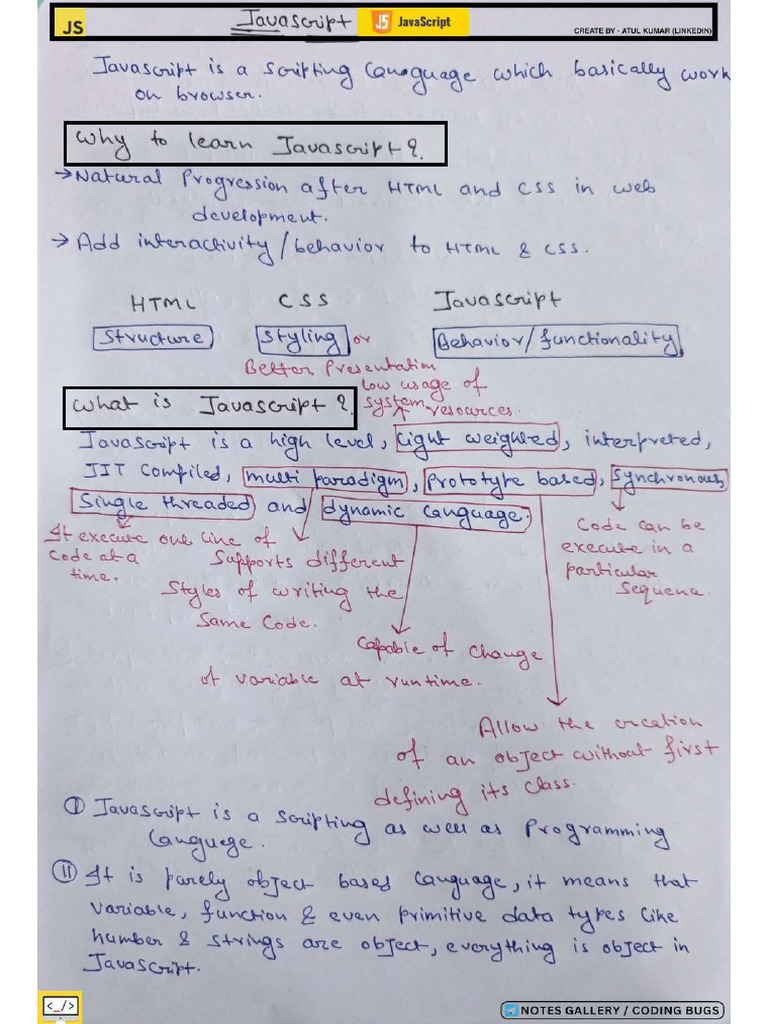 JS
Javascript
JS JavaScript
CREATE BY - ATUL KUMAR (LINKEDIN)
Javascript is a scripting language which basically work
on browser.
Why to learn Javascript?
→ Natural Progression after HTML and CSS in web
development.
→ Add interactivity/behavior to HTML & CSS.
HTML CSS Javascript
Structure Styling or Behavior/functionality
Better Presentation
low usage of
system resources.
What is Javascript?
Javascript is a high level, light weighted, interpreted,
JIT Compiled, multi paradigm, Prototype based, Synchronous,
Single threaded and dynamic language.
It execute one line of
code at a
time.
Supports different
Styles of writing the
Same Code.
Code can be
execute in a
particular
Sequena
Capable of change
of variable at runtime.
Allow the creation
of an object without first
defining its class.
I Javascript is a scripting as well as Programming
languege.
II It is purely object based language, it means that
variable, function & even primitive data types like
number & strings are object, everything is object in
Javascript.
<_/>
NOTES GALLERY / CODING BUGS